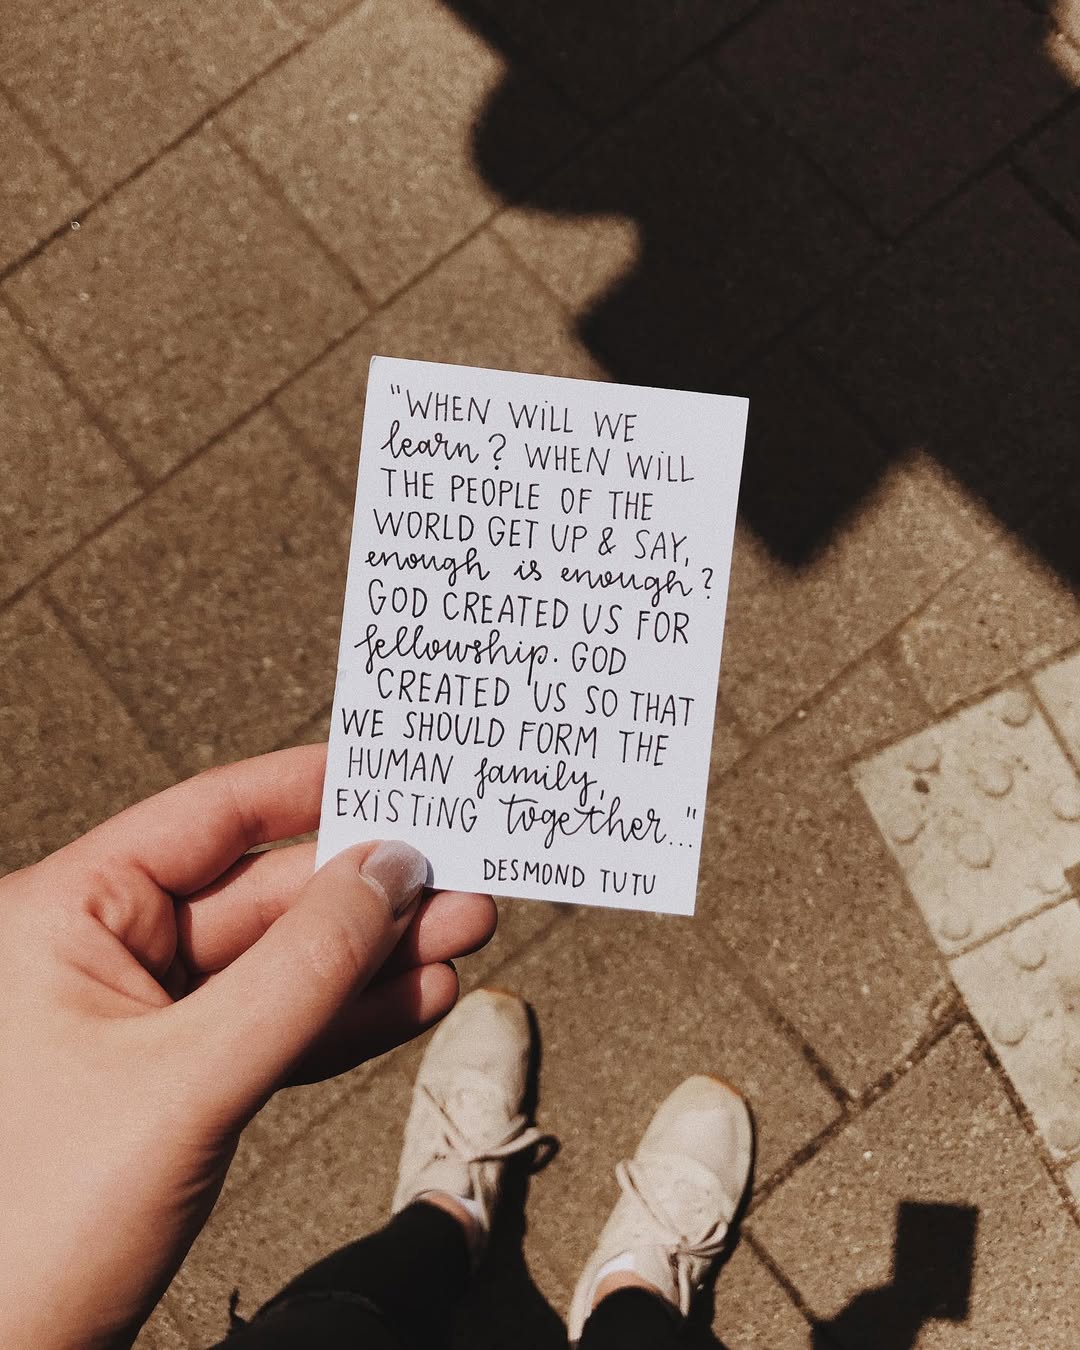 "WHEN WiLL WE
learn? WHEN WiLL
THE PEOPLE OF THE
WORLD GET UP & SAY,
enough is enough?
GOD CREATED US FOR
fellowship. GOD
CREATED US SO THAT
WE SHOULD FORM THE
HUMAN family,
EXiSTiNG together..."
DESMOND TUTU